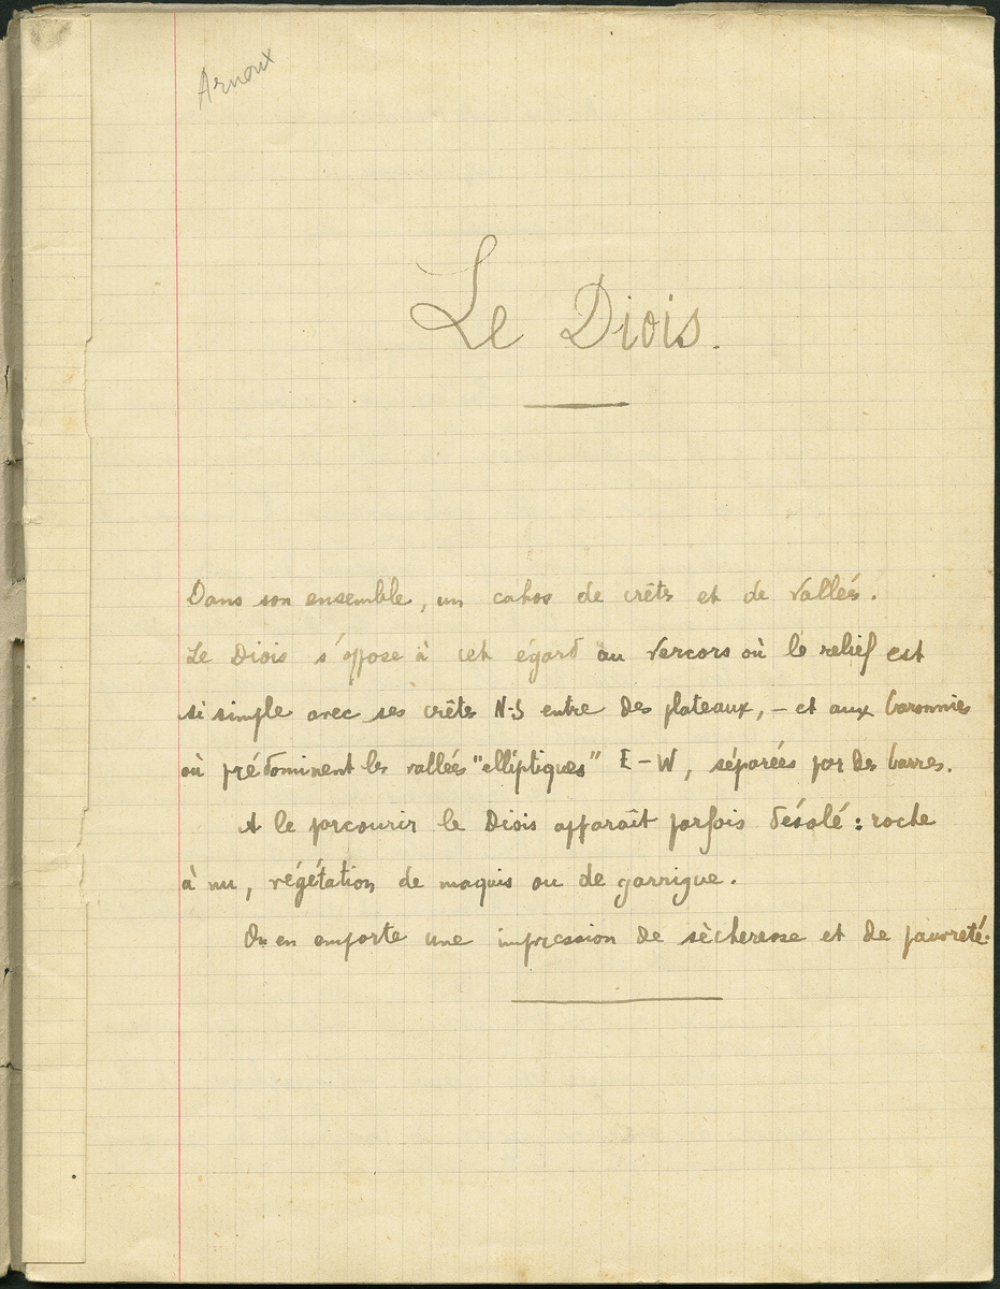 Arnoux
Le Diois.
Dans son ensemble, un cahos de crêts et de vallées.
Le Diois s'oppose à cet égard au Vercors où le relief est
si simple avec ses crêtes N-S entre des plateaux, - et aux baronnies
où prédominent les vallées "elliptiques" E - W, séparées par des barres.
A le parcourir le Diois apparaît parfois désolé : roche
à nu, végétation de maquis ou de garrigue.
On en emporte une impression de sècheresse et de pauvreté.